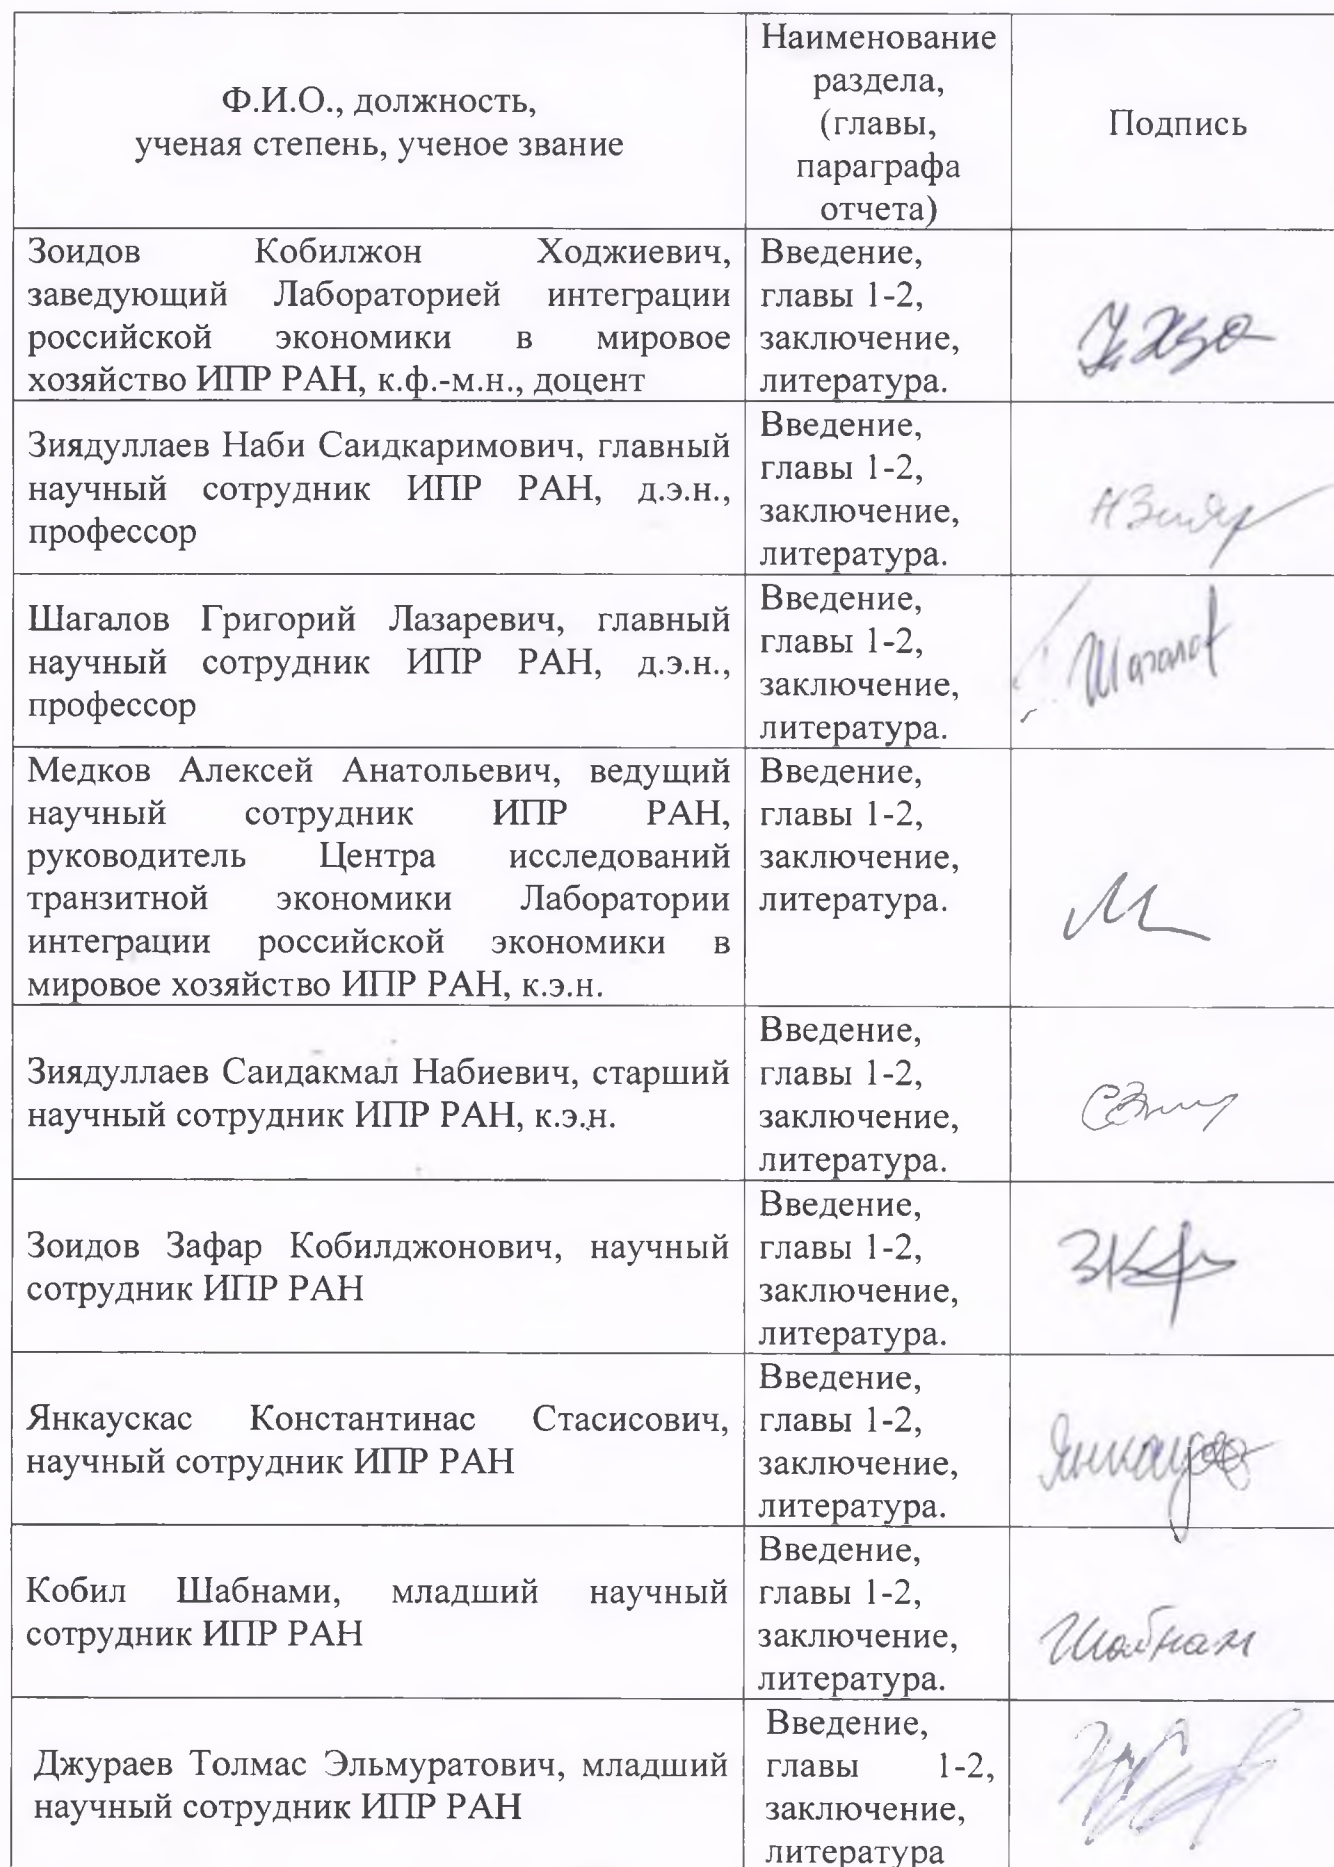 Ф.И.О., должность,
ученая степень, ученое звание
Наименование
раздела,
(главы,
параграфа
отчета)
Подпись
Зоидов Кобилжон Ходжиевич,
заведующий Лабораторией интеграции
российской экономики в мировое
хозяйство ИПР РАН, к.ф.-м.н., доцент
Введение,
главы 1-2,
заключение,
литература.
Зиядуллаев Наби Саидкаримович, главный
научный сотрудник ИПР РАН, д.э.н.,
профессор
Введение,
главы 1-2,
заключение,
литература.
Шагалов Григорий Лазаревич, главный
научный сотрудник ИПР РАН, д.э.н.,
профессор
Введение,
главы 1-2,
заключение,
литература.
Шагалов
Медков Алексей Анатольевич, ведущий
научный сотрудник ИПР РАН,
руководитель Центра исследований
транзитной экономики Лаборатории
интеграции российской экономики в
мировое хозяйство ИПР РАН, к.э.н.
Введение,
главы 1-2,
заключение,
литература.
Зиядуллаев Саидакмал Набиевич, старший
научный сотрудник ИПР РАН, к.э.н.
Введение,
главы 1-2,
заключение,
литература.
Зоидов Зафар Кобилджонович, научный
сотрудник ИПР РАН
Введение,
главы 1-2,
заключение,
литература.
Янкаускас Константинас Стасисович,
научный сотрудник ИПР РАН
Введение,
главы 1-2,
заключение,
литература.
Кобил Шабнами, младший научный
сотрудник ИПР РАН
Введение,
главы 1-2,
заключение,
литература.
Шабнам
Джураев Толмас Эльмуратович, младший
научный сотрудник ИПР РАН
Введение,
главы 1-2,
заключение,
литература